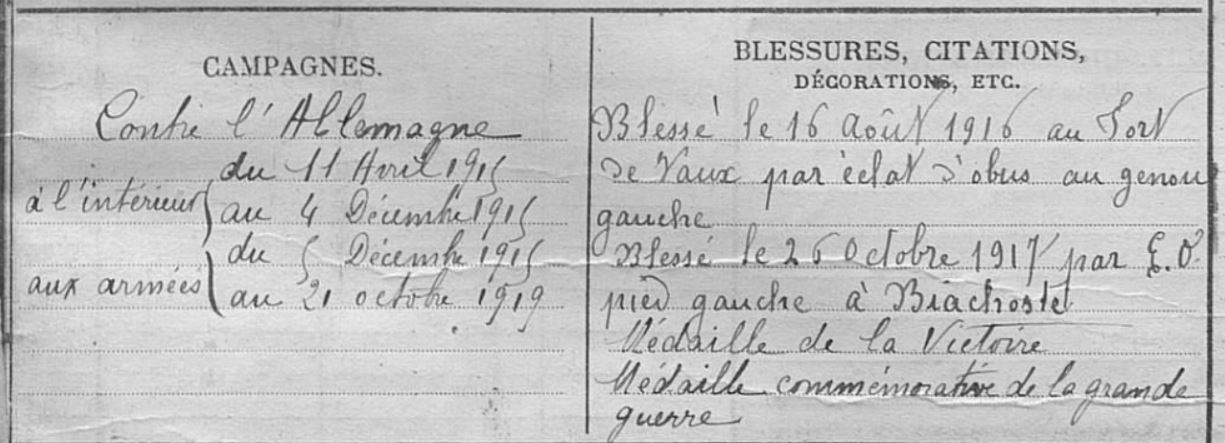 CAMPAGNES.
Contre l'Allemagne
du 11 Avril 1915
à l'intérieur
au 4 Décembre 1915
du 5 Décembre 1915
aux armées
au 21 octobre 1919
BLESSURES, CITATIONS,
DÉCORATIONS, ETC.
Blessé le 16 Août 1916 au Fort
de Vaux par éclat d'obus au genou
gauche
Blessé le 26 Octobre 1917 par E.O.
pied gauche à Biachoste
Médaille de la Victoire
Médaille commémorative de la grande
guerre